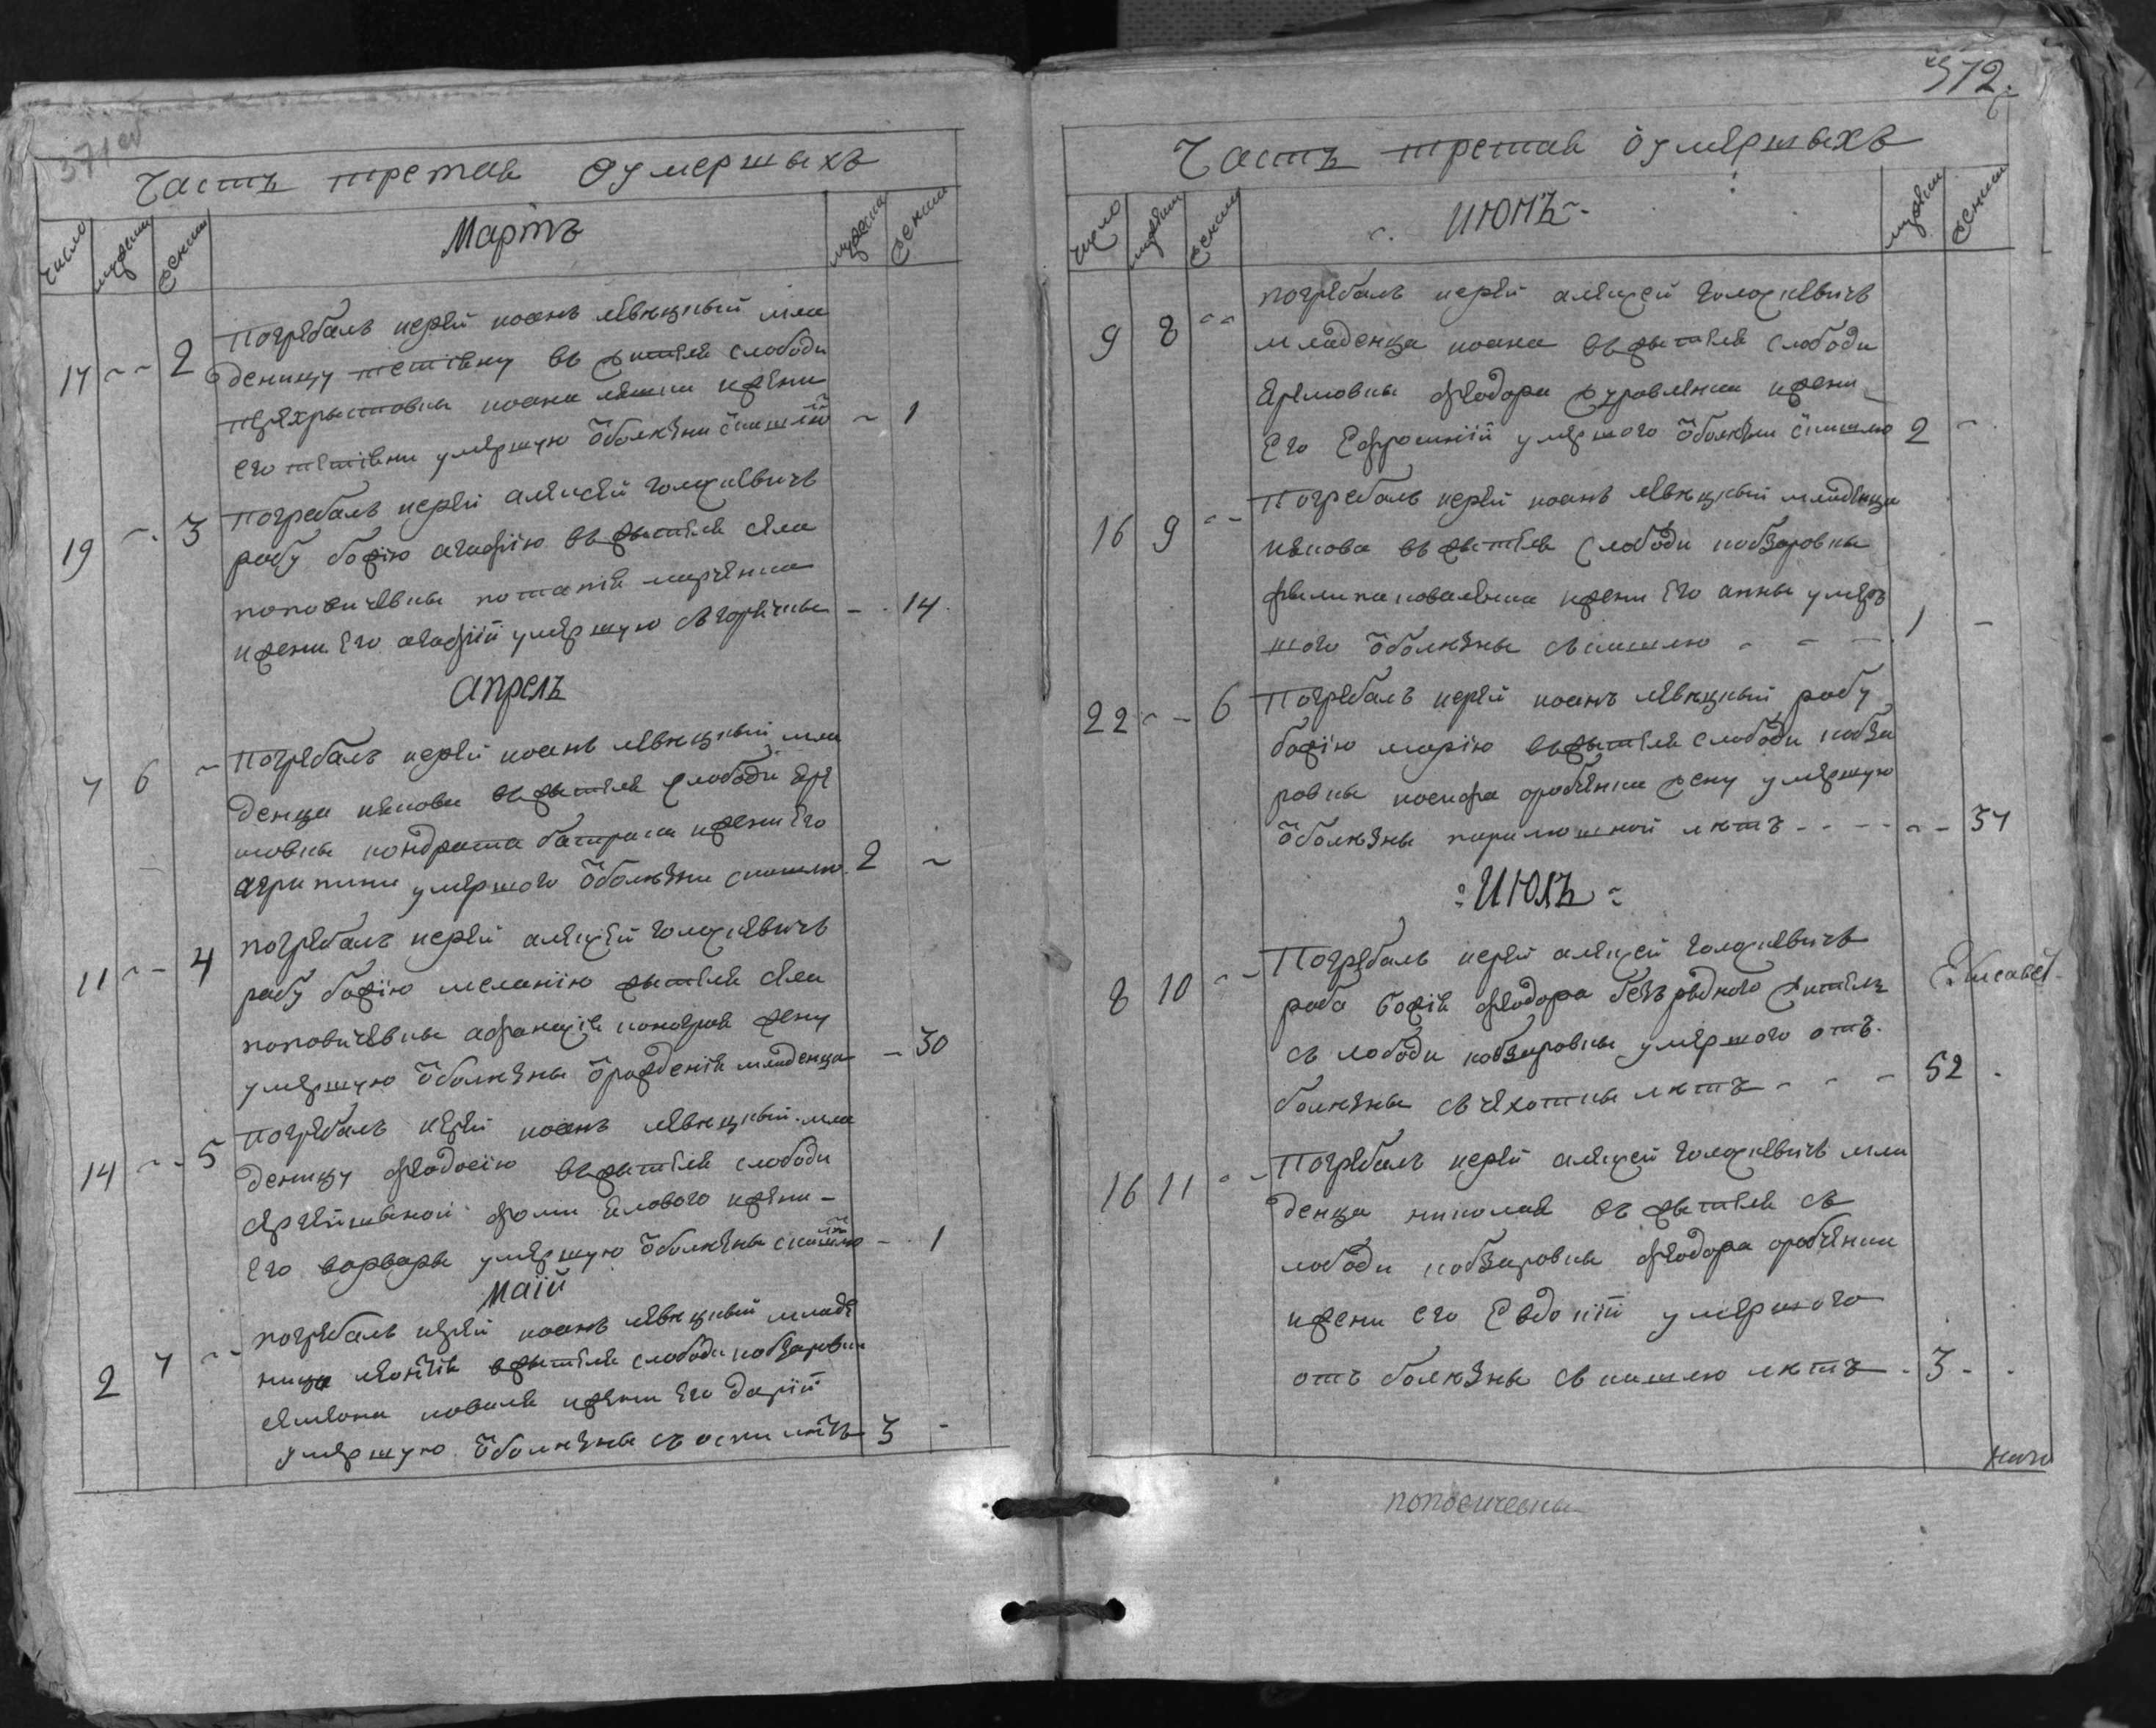 371 об
Часть третая Оумершыхъ
число
мужеска
женска
Мартъ
мужеска
женска
17 ~ ~ 2
Погребалъ иерей иоанъ левѣцкый мла
деницу тетіяну въ жителя слободи
иоана и жени
его тетіяни умершую ѿболѣзни кашлю ~ 1
19 ~ 3
Погребалъ иерей алексей голяхевичъ
рабу божію агафію въ жытеля села
поповичевкы потапія марченка
и жени его агафіи умершую съ горячкы - 14
Апрель
7 6 ~
Погребалъ иерей иоанъ левѣцкый мла
денца иякова въ жытеля слободи яре
мовкы кондрата и жени его
агрипини умершого ѿболѣзни скашлю 2 ~
11 ~ - 4
Погребалъ иерей алексей голяхевичъ
рабу божію меланію жытеля села
поповичевкы афанасія жену
умершую ѿболѣзны ѿрожденія младенца - 30
14 ~ ~ 5
Погребалъ иерей иоанъ левѣцкый мла
деницу феодосію въ жытеля слободи
фоми и жени -
его варвары умершую ѿболѣзны скашлю - 1
Маій
2 7 ~ ~
Погребалъ иерей иоанъ левѣцкый младе
ница леонтія вжытеля слободи кобзаровки
симеона коваля и жени его даріи
умершую ѿболѣзны съ оспи лѣтъ 3 -
372.
Часть третая ѿумершыхъ
число
мужеска
женска
Июнъ
мужеска
женска
9 8 ~ ~
Погребалъ иерей алексей голяхевичъ
младенца иоана въ жытеля слободи
яремовкы феодора журавленка и жени
его Ефросиніи умершого ѿболѣзни кашлю 2 ~
16 9 ~ ~
Погребалъ иерей иоанъ левѣцкый младенца
иякова въ жытеля слободи кобзаровкы
филипа коваленка и жени его анны умер
шого ѿболѣзны съкашлю - - - 1 -
22 ~ - 6
Погребалъ иерей иоанъ левѣцкый рабу
божію марію въжытеля слободи кобза
ровкы иосифа оробченка жену умершую
ѿболѣзны лѣтъ - - - - - 37
Июлъ
8 10 ~ ~
Погребалъ иерей алексей голяхевичъ
раба божія феодора безъродного жителъ
съ лободи кобзаровкы умершого отъ
болѣзны съ чахоткы лѣтъ - - - 52
Елисавет
16 11 ~ ~
Погребалъ иерей алексей голяхевичъ мла
денца николая въ жытеля съ
лободи кобзаровкы феодора оробченка
и жени его Евдокіи умершого
отъ болѣзны съ кашлю лѣтъ - 3 -
поповичевкы